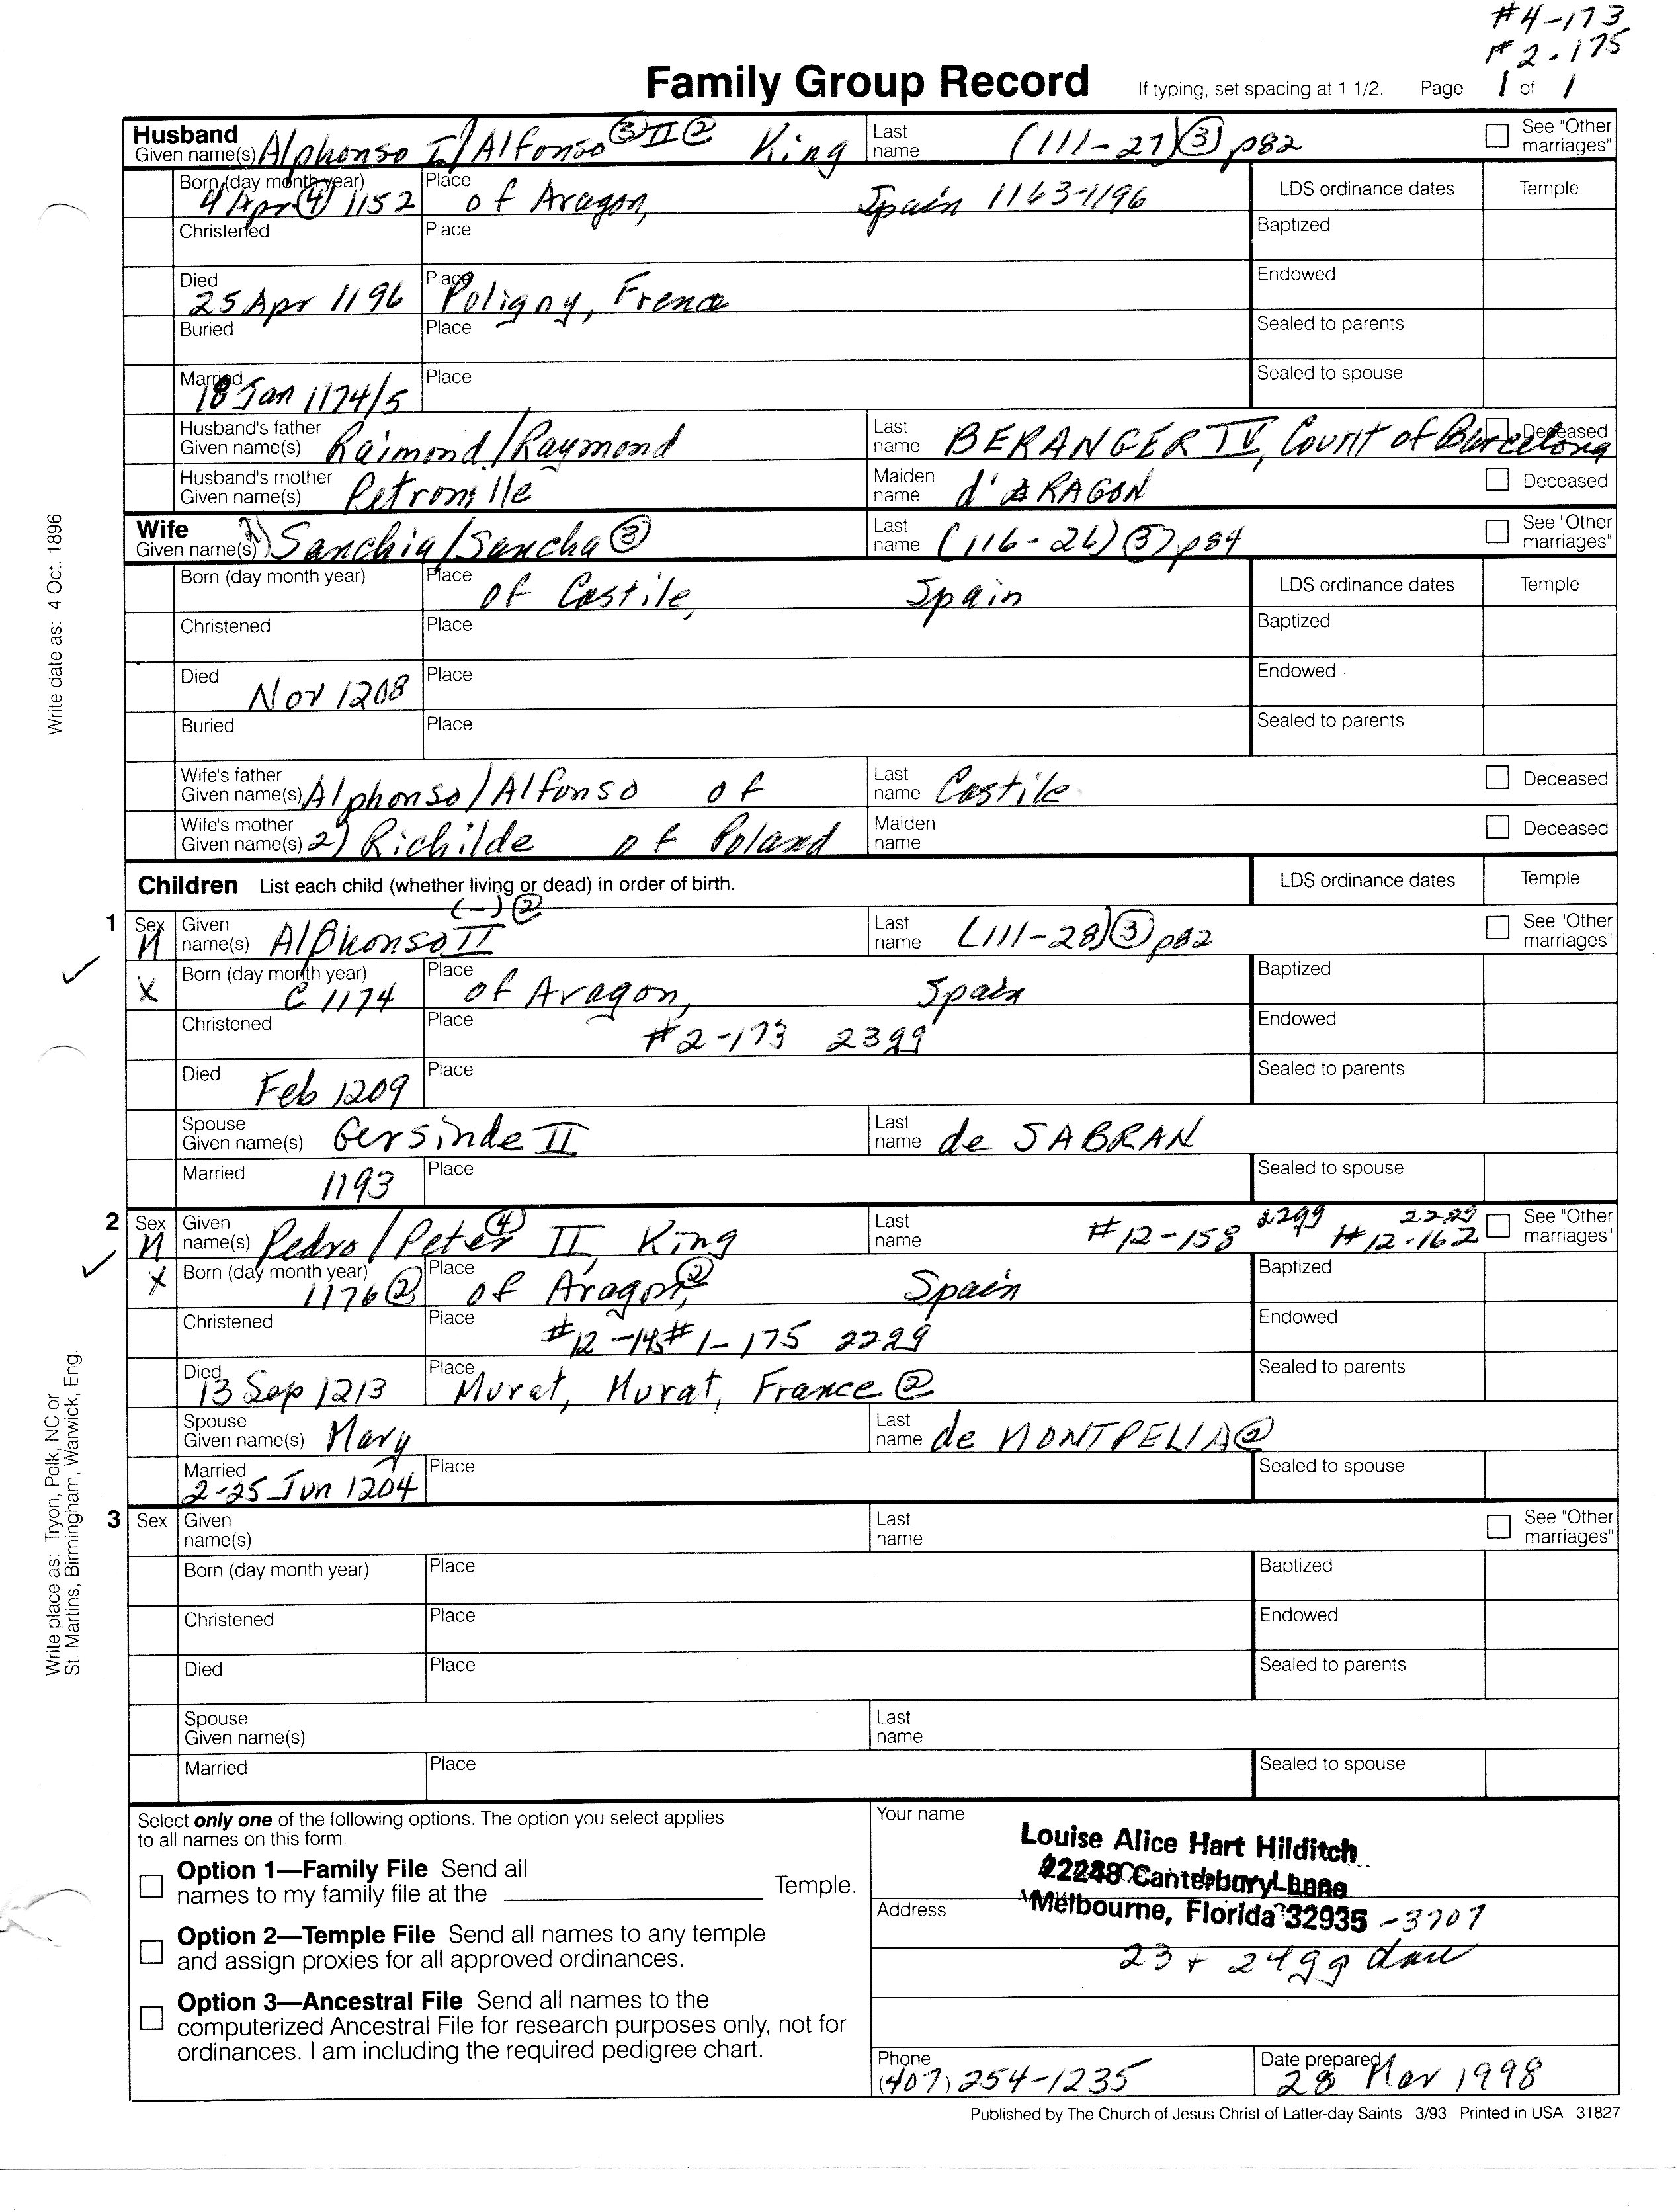 #4-173
#2-175
Family Group Record If typing, set spacing at 1 1/2. Page 1 of 1
Husband
Given name(s) Alphonso I/Alfonso ③ II ② King Last name (111-27) ③ p82 See "Other marriages"
Born (day month year) 4 Apr ④ 1152 Place of Aragon, Spain 1163-1196 LDS ordinance dates Temple
Christened Place Baptized
Died 25 Apr 1196 Place Poligny, France Endowed
Buried Place Sealed to parents
Married 18 Jan 1174/5 Place Sealed to spouse
Husband's father Given name(s) Raimond/Raymond Last name BERANGER IV, Count of Barcelona Deceased
Husband's mother Given name(s) Petronille Maiden name d'ARAGON Deceased
Wife
Given name(s) 2) Sanchia/Sancha ③ Last name (116-26) ③ p84 See "Other marriages"
Born (day month year) Place of Castile, Spain LDS ordinance dates Temple
Christened Place Baptized
Died Nov 1208 Place Endowed
Buried Place Sealed to parents
Wife's father Given name(s) Alphonso/Alfonso of Last name Castile Deceased
Wife's mother Given name(s) 2) Richilde of Poland Maiden name Deceased
Children List each child (whether living or dead) in order of birth. LDS ordinance dates Temple
(-) ②
1 Sex M Given name(s) Alphonso II Last name (111-28) ③ p82 See "Other marriages"
X Born (day month year) C 1174 Place of Aragon, Spain Baptized
Christened Place #2-173 23gg Endowed
Died Feb 1209 Place Sealed to parents
Spouse Given name(s) Gersinde II Last name de SABRAN
Married 1193 Place Sealed to spouse
2 Sex M Given name(s) Pedro/Peter ④ II, King Last name #12-158 22gg #12-162 22gg See "Other marriages"
X Born (day month year) 1176 ② Place of Aragon, ② Spain Baptized
Christened Place #12-145 #1-175 22gg Endowed
Died 13 Sep 1213 Place Murat, Murat, France ② Sealed to parents
Spouse Given name(s) Mary Last name de MONTPELIA ②
Married 2-25 Jun 1204 Place Sealed to spouse
3 Sex Given name(s) Last name See "Other marriages"
Born (day month year) Place Baptized
Christened Place Endowed
Died Place Sealed to parents
Spouse Given name(s) Last name
Married Place Sealed to spouse
Select only one of the following options. The option you select applies
to all names on this form.
Option 1—Family File Send all
names to my family file at the Temple.
Option 2—Temple File Send all names to any temple
and assign proxies for all approved ordinances.
Option 3—Ancestral File Send all names to the
computerized Ancestral File for research purposes only, not for
ordinances. I am including the required pedigree chart.
Your name Louise Alice Hart Hilditch
Canterbury Lane
Address Melbourne, Florida 32935 -3707
23 + 24gg
Phone (407) 254-1235 Date prepared 28 Mar 1998
Published by The Church of Jesus Christ of Latter-day Saints 3/93 Printed in USA 31827
Write date as: 4 Oct. 1896
Write place as: Tryon, Polk, NC or
St. Martins, Birmingham, Warwick, Eng.